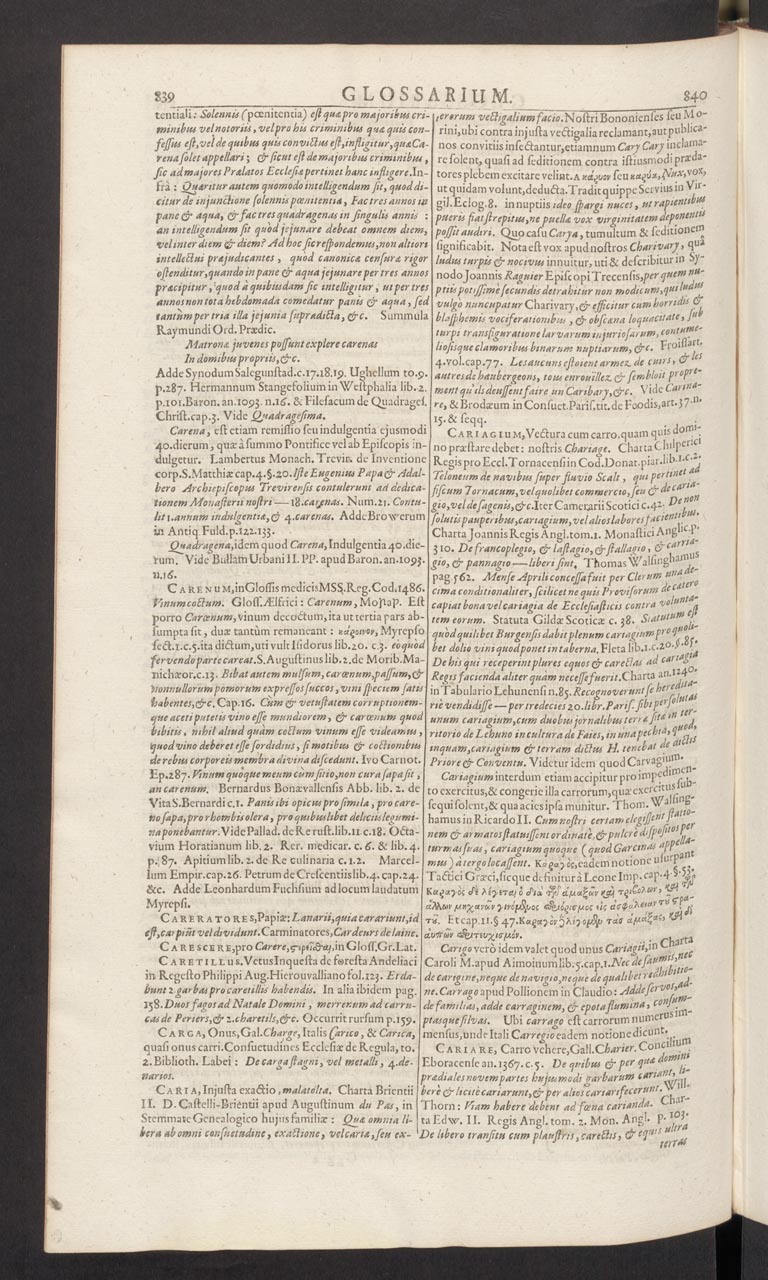 839
GLOSSARIUM.
840
tentiali: Solennis (pœnitentia) est quæ pro majoribus cri-
minibus vel notoriis, vel pro his criminibus quæ quis con-
fessus est, vel de quibus quis convictus est, infligitur, quæ Ca-
rena solet appellari; & sicut est de majoribus criminibus,
sic ad majores Prælatos Ecclesiæ pertinet hanc infligere. In-
frà: Quæritur autem quomodo intelligendum sit, quod di-
citur de injunctione solennis pœnitentiæ, Fac tres annos in
pane & aqua, & fac tres quadragenas in singulis annis:
an intelligendum sit quòd jejunare debeat omnem diem,
vel inter diem & diem? Ad hoc sic respondemus, non altiori
intellectui præjudicantes, quòd canonicæ censuræ rigor
ostenditur, quando in pane & aqua jejunare per tres annos
præcipitur, quod à quibusdam sic intelligitur, ut per tres
annos non tota hebdomada comedatur panis & aqua, sed
tantùm per tria illa jejunia supradicta, &c. Summula
Raymundi Ord. Prædic.
Matronæ juvenes possunt explere carenas
In domibus propriis, &c.
Adde Synodum Salegunstad. c. 17. 18. 19. Ughellum to. 9.
p. 287. Hermannum Stangefolium in Westphalia lib. 2.
p. 101. Baron. an. 1093. n. 16. & Filesacum de Quadrages.
Christ. cap. 3. Vide Quadragesima.
Carena, est etiam remissio seu indulgentia ejusmodi
40. dierum, quæ à summo Pontifice vel ab Episcopis in-
dulgetur. Lambertus Monach. Trevir. de Inventione
corp. S. Matthiæ cap. 4. §. 20. Iste Eugenius Papa & Adal-
bero Archiepiscopus Trevirensis contulerunt ad dedica-
tionem Monasterii nostri — 18. carenas. Num. 21. Contu-
lit 1. annum indulgentiæ, & 4. carenas. Adde Browerum
in Antiq. Fuld. p. 122. 133.
Quadragena, idem quod Carena, Indulgentia 40. die-
rum. Vide Bullam Urbani II. PP. apud Baron. an. 1093.
n. 16.
CARENUM, in Glossis medicis MSS. Reg. Cod. 1486.
Vinum coctum. Gloss. Ælfrici: Carenum, Morap. Est
porro Carœnum, vinum decoctum, ita ut tertia pars ab-
sumpta sit, duæ tantùm remaneant: κάροινον, Myrepso
sect. 1. c. 5. ita dictum, uti vult Isidorus lib. 20. c. 3. eo quòd
fervendo parte careat. S. Augustinus lib. 2. de Morib. Ma-
nichæor. c. 13. Bibat autem mulsum, carœnum, passum, &
nonnullorum pomorum expressos succos, vini speciem satis
habentes, &c. Cap. 16. Cùm & vetustatem corruptionem-
que aceti putetis vino esse mundiorem, & carœnum quod
bibitis, nihil aliud quàm coctum vinum esse videamus,
quod vino deberet esse sordidius, si motibus & coctionibus
de rebus corporeis membra divina discedunt. Ivo Carnot.
Ep. 287. Vinum quoque meum cùm sitio, non cura sapa sit,
an carenum. Bernardus Bonævallensis Abb. lib. 2. de
Vita S. Bernardi c. 1. Panis ibi opicus pro simila, pro care-
no sapa, pro rhombis olera, pro quibuslibet deliciis legumi-
na ponebantur. Vide Pallad. de Re rust. lib. 11 c. 18. Octa-
vium Horatianum lib. 2. Rer. medicar. c. 6. & lib. 4.
p. 87. Apitium lib. 2. de Re culinaria c. 1. 2. Marcel-
lum Empir. cap. 26. Petrum de Crescentiis lib. 4. cap. 24.
&c. Adde Leonhardum Fuchsium ad locum laudatum
Myrepsi.
CARERATORES, Papiæ: Lanarii, qui acariunt, id
est, carpiūt vel dividunt. Carminatores, Cardeurs de laine.
CARESCERE, pro Carere, in Gloss. Gr. Lat.
CARETILLUS. Vetus Inquesta de foresta Andeliaci
in Regesto Philippi Aug. Hierouvalliano fol. 123. Erda-
bunt 2 garbas pro caretillis habendis. In alia ibidem pag.
158. Duos fagos ad Natale Domini, merrenum ad carru-
cas de Periers, & 2. charetils, &c. Occurrit rursum p. 159.
CARGA, Onus, Gal. Charge, Italis Carico, & Carica,
quasi onus carri. Consuetudines Ecclesiæ de Regula, to.
2. Biblioth. Labei: De carga stagni, vel metalli, 4. de-
narios.
CARIA, Injusta exactio, malatolta. Charta Brientii
II. D. Castelli-Brientii apud Augustinum du Pas, in
Stemmate Genealogico hujus familiæ: Quæ omnia li-
bera ab omni consuetudine, exactione, vel caria, seu ex-
terarum vectigalium facio. Nostri Bononienses seu Mo-
rini, ubi contra injusta vectigalia reclamant, aut publica-
nos convitiis insectantur, etiamnum Cary Cary inclama-
re solent, quasi ad seditionem contra istiusmodi præda-
tores plebem excitare velint. A κάρυον seu καρύα, Nux, vox,
ut quidam volunt, deducta. Tradit quippe Servius in Vir-
gil. Eclog. 8. in nuptiis ideo spargi nuces, ut rapientibus
pueris fiat strepitus, ne puellæ vox virginitatem deponentis
possit audiri. Quo casu Carya, tumultum & seditionem
significabit. Nota est vox apud nostros Charivary, quâ
ludus turpis & nocivus innuitur, uti & describitur in Sy-
nodo Joannis Raguier Episcopi Trecensis, per quem nu-
ptiis potissimè secundis detrahitur non modicum, qui ludus
vulgò nuncupatur Charivary, & efficitur cum horridis &
blasphemis vociferationibus, & obscæna loquacitate, sub
turpi transfiguratione larvarum injuriosarum, contume-
liosisque clamoribus binarum nuptiarum, &c. Froissart.
4. vol. cap. 77. Les aucuns estoient armez de cuirs, & les
autres de haubergeons, tous enroüillez, & sembloit propre-
ment qu'ils deussent faire un Caribary, &c. Vide Carina-
re, & Brodæum in Consuet. Paris. tit. de Foodis, art. 37. n.
15. & seqq.
CARIAGIUM, Vectura cum carro, quam quis domi-
no præstare debet: nostris Chariage. Charta Chilperici
Regis pro Eccl. Tornacensi in Cod. Donat. piar. lib. 1. c. 2.
Teloneum de navibus super fluvio Scalt, qui pertinet ad
fiscum Tornacum, vel quolibet commercio, seu & de caria-
gio, vel de sagenis, &c. Iter Camerarii Scotici c. 42. De non
solutis pauperibus, cariagium, vel alios labores facientibus.
Charta Joannis Regis Angl. tom. 1. Monastici Anglic. p.
310. De francoplegio, & lastagio, & stallagio, & carria-
gio, & pannagio — liberi sint. Thomas Walsinghamus
pag. 562. Mense Aprili concessa fuit per Clerum una de-
cima conditionaliter, scilicet ne quis Provisorum de catero
capiat bona vel cariagia de Ecclesiasticis contra volunta-
tem eorum. Statuta Gildæ Scoticæ c. 38. Statutum est
quòd quilibet Burgensis dabit plenum cartagium pro quoli-
bet dolio vini quod ponet in taberna. Fleta lib. 1. c. 20. §. 85.
De his qui receperint plures equos & carectas ad cariagia
Regis facienda aliter quam necesse fuerit. Charta an. 1240.
in Tabulario Lehunensi n. 85. Recognoverunt se heredita-
riè vendidisse — per tredecies 20. libr. Paris. sibi persolutas
unum cariagium, cum duobus jornalibus terræ sita in ter-
ritorio de Lehuno in cultura de Faies, in una pechia, quod,
inquam, cariagium & terram dictus H. tenebat de dictis
Priore & Conventu. Videtur idem quod Carvagium.
Cariagium interdum etiam accipitur pro impedimen-
to exercitus, & congerie illa carrorum, quæ exercitus sub-
sequi solent, & qua acies ipsa munitur. Thom. Walsing-
hamus in Ricardo II. Cum nostri certam elegissent statio-
nem & armatos statuissent ordinatè, & pulcrè dispositos per
turmas suas, cariagium quoque (quod Garcinas appella-
mus) à tergo locassent. Καραγὸς, eadem notione usurpant
Tactici Græci, sicque definitur à Leone Imp. cap. 4. §. 53.
Καραγὸς δὲ λέγεται ὁ διὰ τῶν ἁμαξῶν καὶ τριβόλων, καὶ τῶν
ἄλλων μηχανῶν γινόμενος περιορισμὸς εἰς ἀσφάλειαν τοῦ στρα-
τοῦ. Et cap. 11. §. 47. Καραγὸν λέγομεν τὰς ἁμάξας, καὶ δι'
αὐτῶν περιτειχισμόν.
Carigo verò idem valet quod unus Cariagii, in Charta
Caroli M. apud Aimoinum lib. 5. cap. 1. Nec de saumis, nec
de carigine, neque de navigio, neque de qualibet redhibitio-
ne. Carrago apud Pollionem in Claudio: Adde servos, ad-
de familias, adde carraginem, & epota flumina, consum-
ptasque silvas. Ubi carrago est carrorum numerus im-
mensus, unde Itali Carregio eadem notione dicunt.
CARIARE, Carro vehere, Gall. Charier. Concilium
Eboracense an. 1367. c. 5. De quibus & per quæ domini
prædiales novem partes hujusmodi garbarum cariant, li-
berè & licitè cariarunt, & per alios cariari fecerunt. Will.
Thorn: Viam habere debent ad fœna carianda. Char-
ta Edw. II. Regis Angl. tom. 2. Mon. Angl. p. 103.
De libero transitu cum plaustris, carectis, & equis ultra
terras